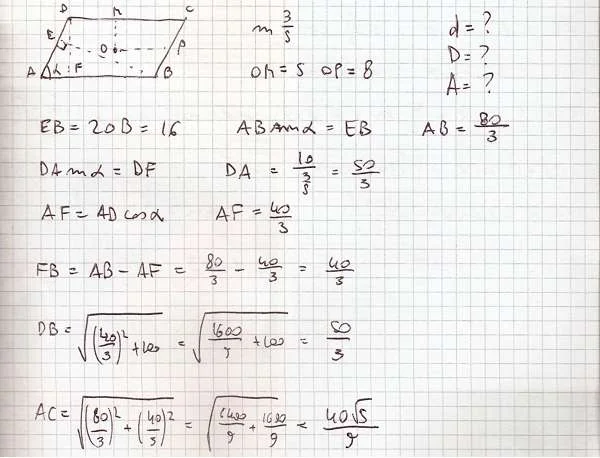 D M C
m 3/5
d = ?
E
O
P
OM = 5 OP = 8
D = ?
A α F B
A = ?
EB = 2OB = 16 AB sin α = EB AB = 80/3
DA sin α = DF DA = 10/(3/5) = 50/3
AF = AD cos α AF = 40/3
FB = AB − AF = 80/3 − 40/3 = 40/3
DB = √((40/3)² + 100) = √(1600/9 + 100) = 50/3
AC = √((80/3)² + (40/3)²) = √(6400/9 + 1600/9) = 40√5/9